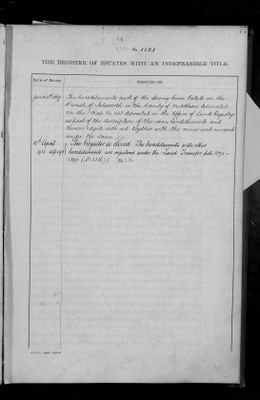 No. 1123
THE REGISTER OF ESTATES WITH AN INDEFEASIBLE TITLE.
Date of Entry. Description.
The hereditaments part of the Spring Grove Estate in the
Parish of Isleworth in the County of Middlesex delineated
on the Map No. 1123 deposited in the Office of Land Registry
as part of the description of the same hereditaments and
thereon edged with red together with the mines and minerals
under the same
The Register is closed. The hereditaments with other
hereditaments are registered under the Land Transfer Acts 1875 &
1897